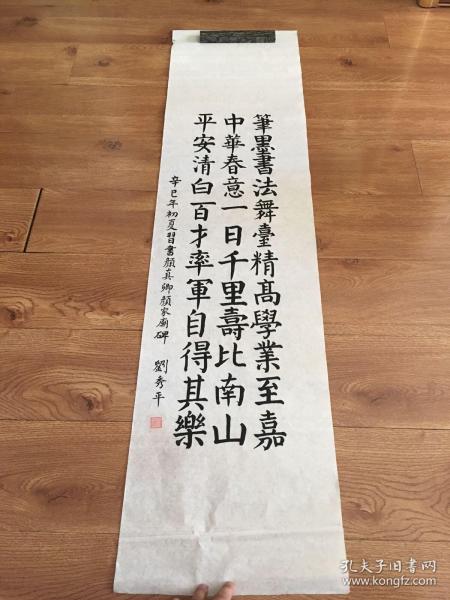 筆墨書法舞臺精高學業至嘉
中華春意一日千里壽比南山
平安清白百才率軍自得其樂
辛巳年初夏習書顏真卿顏家廟碑 劉秀平
孔夫子旧书网
www.kongfz.com